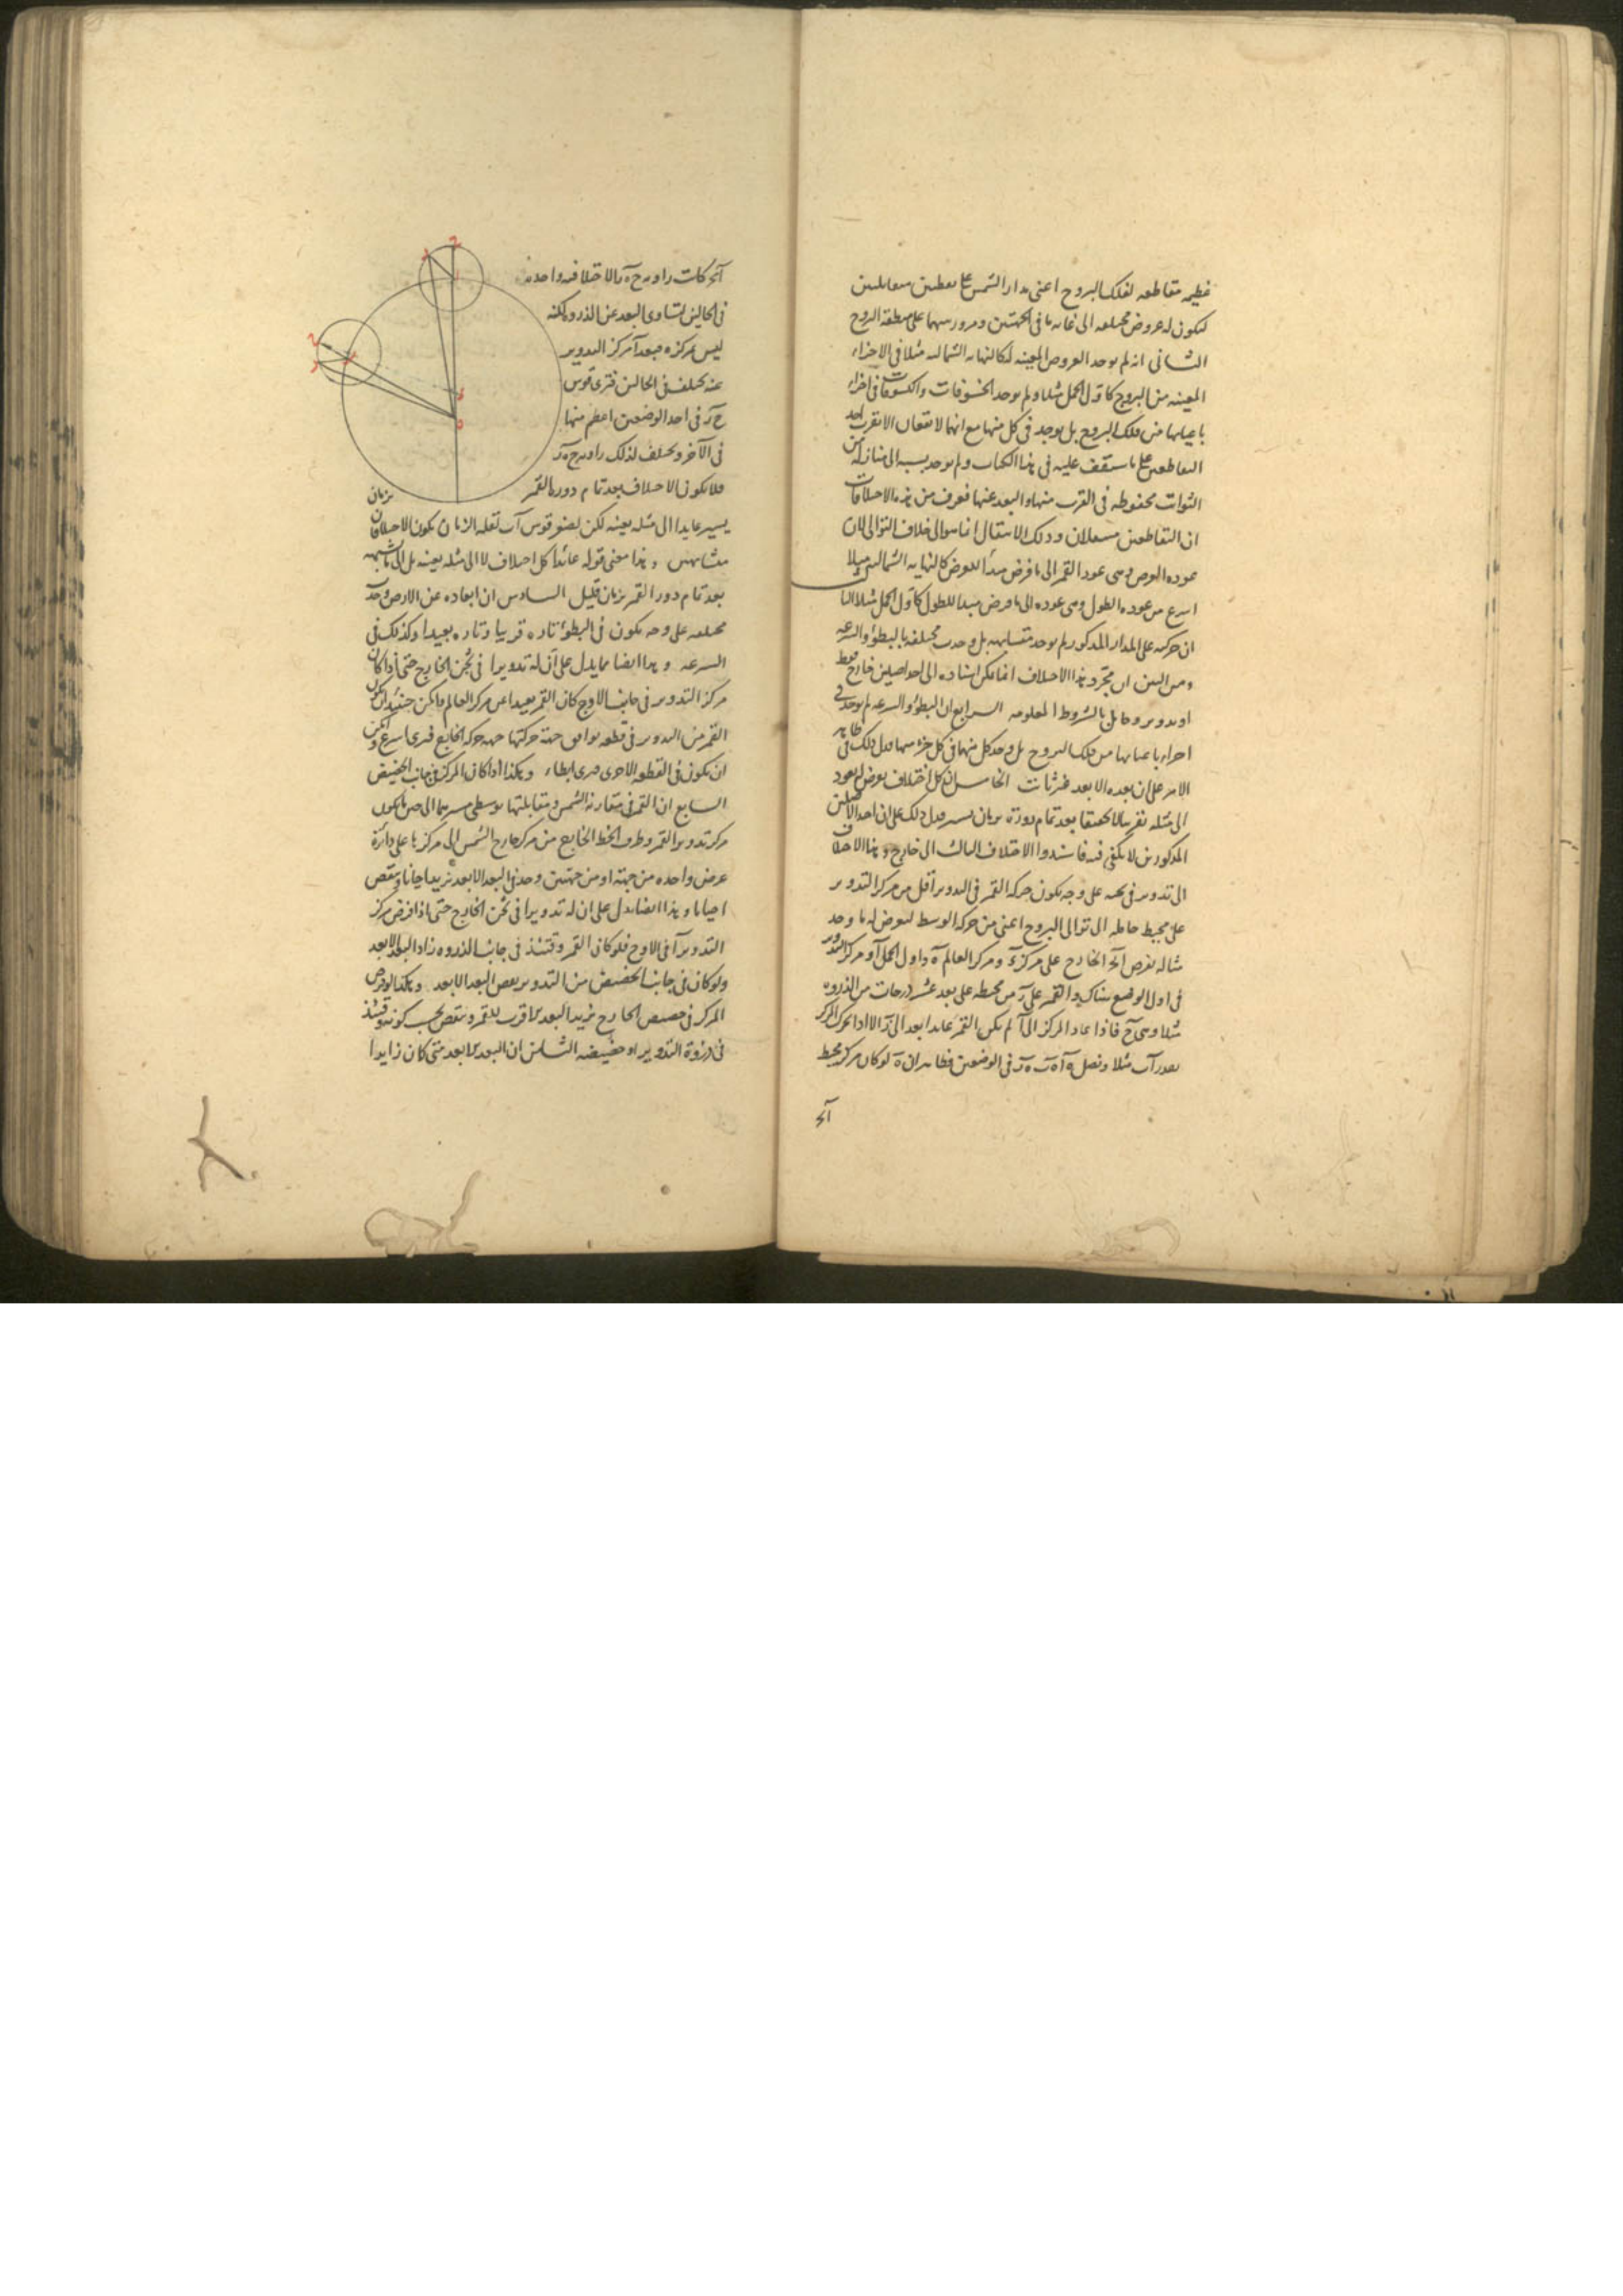 عظيمه مقاطعه لفلك البروج اعنى مدار الشمس على نقطتين متقابلتين
ليكون له عروض مختلفه الى غايه ما فى الجهتين ومرورهما على منطقة البروج
الثانى انه لم يوجد العروض المعينه كالنهايه الشماليه مثلا فى الاجزاء
المعينه من البروج كاول الحمل مثلا ولم يوجد الخسوفات والكسوفات فى اجزاء
باعيانها من فلك البروج بل يوجد فى كل منها مع انهما لا تقعان الا بقرب احد
التقاطعين على ما ستقف عليه فى هذا الكتاب ولم يوجد نسبه الى منازله من
الثوابت محفوظه فى القرب منها والبعد عنها فعرف من هذه الاختلافات
ان التقاطعين منتقلان وذلك الانتقال انما هو الى خلاف التوالى لان
عوده العرض وهى عود القمر الى ما فرض مبدأ للعرض كالنهايه الشماليه مثلا
اسرع من عوده الطول وهى عوده الى ما فرض مبدا للطول كاول الحمل مثلا الثالث
ان حركته على المدار المذكور لم يوجد متشابهه بل وجدت مختلفه بالبطؤ والسرعه
ومن البين ان مجرد هذا الاختلاف انما يمكن اسناده الى احد اصلين خارج فقط
او تدوير وحامل بالشروط المعلومه الرابع ان البطؤ والسرعه لم يوجد فى
اجزاء باعيانها من فلك البروج بل وجد كل منها فى كل جزء منها فدل ذلك فى ظاهر
الامر على ان بعده الابعد غير ثابت الخامس ان كل اختلاف يعرض له يعود
الى مثله تقريبا لا تحقيقا بعد تمام دورة بزمان يسير فدل ذلك على ان احد الاصلين
المذكورين لا يكفى فيه فاسندوا الاختلاف الثالث الى خارج وهذا الاختلاف
الى تدوير فى ثخنه على وجه يكون حركة القمر فى التدوير اقل من مركز التدوير
على محيط حامله الى توالى البروج اعنى من حركة الوسط ليعرض له ما وجد
مثاله نفرض اآح الخارج على مركز ء ومركز العالم ه واول الحمل آ ومركز التدوير
فى اول الوضع هناك والقمر على ر من محيطه على بعد عشر درجات من الذروه
مثلا وهى ح فاذا عاد المركز الى آ لم يكن القمر عائدا بعد الى ر الا اذا تحرك المركز
بقدر آب مثلا ونصل ه آ ه ب ه ر فى الوضعين فظاهر ان ه لو كان مركز محيط
آح
آح كانت زاويه ح ه ر الاختلافيه واحده
فى الحالين لتساوى البعد عن الذروه لكنه
ليس بمركزه فبعد آ مركز التدوير
عنه يختلف فى الحالين فترى قوس
ح ر فى احد الوضعين اعظم منها
فى الآخر ويختلف لذلك زاويه ح ه ر
فلا يكون الاختلاف بعد تمام دوره القمر بزمان
يسير عايدا الى مثله بعينه لكن لصغر قوس آب لقله الزمان يكون الاختلافان
متشابهين وهذا معنى قوله عائدا كل اختلاف لا الى مثله بعينه بل الى ما شبهه
بعد تمام دور القمر بزمان قليل السادس ان ابعاده عن الارض وجدت
مختلفه على وجه يكون فى البطؤ تاره قريبا وتاره بعيدا وكذلك فى
السرعه وهذا ايضا مما يدل على ان له تدويرا فى ثخن الخارج حتى اذا كان
مركز التدوير فى جانب الاوج كان القمر بعيدا عن مركز العالم وامكن حينئذ ان يكون
القمر من التدوير فى قطعه يوافق جهة حركتها جهه حركه الخارج فيرى اسرع وامكن
ان يكون فى القطعه الاخرى فيرى ابطاء وهكذا اذا كان المركز فى جانب الحضيض
السابع ان القمر فى مقارنة الشمس ومقابلتها بوسطى مسيرهما الى حين ما يكون
مركز تدوير القمر وطرف الخط الخارج من مركز خارج الشمس الى مركزها على دائرة
عرض واحده من جهة او من جهتين وجد فى البعد الابعد يزيد احيانا وينقص
احيانا وهذا ايضا يدل على ان له تدويرا فى ثخن الخارج حتى اذا فرض مركز
التدوير آ فى الاوج فلو كان القمر وقتئذ فى جانب الذروه زاد البعد الابعد
ولو كان فى جانب الحضيض من التدوير نقص البعد الابعد وهكذا لو فرض
المركز فى حضيض الخارج يزيد البعد الاقرب للقمر وينقص بحسب كونه وقتئذ
فى ذروة التدوير او حضيضه الثامن ان البعد الابعد متى كان زايدا